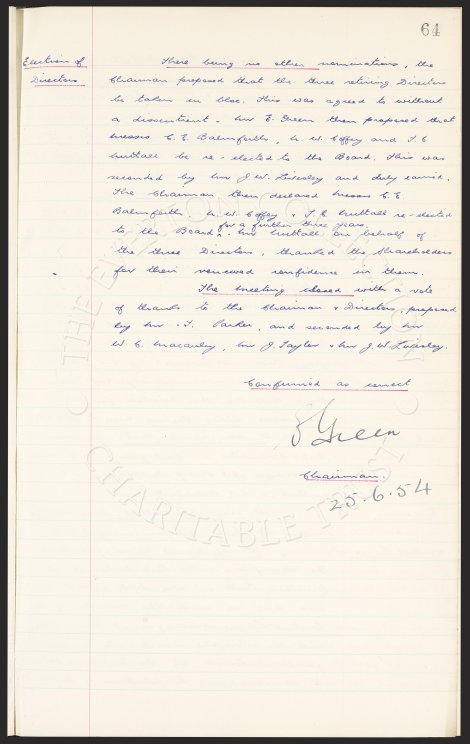 64
Election of
Directors
There being no other nominations, the
Chairman proposed that the three retiring Directors
be taken en bloc. This was agreed to without
a dissentient. Mr E. Green then proposed that
Messrs C. E. Balmforth, W. Coffey and T. E
Nuttall be re-elected to the Board. This was
seconded by Mr J. W. Livesley and duly carried.
The Chairman then declared Messrs C. E.
Balmforth, W. Coffey & T. E. Nuttall re-elected
for a further three years.
to the Board. Mr Nuttall on behalf of
the three Directors, thanked the Shareholders
for their renewed confidence in them.
The meeting closed with a vote
of thanks to the Chairman & Directors, proposed
by Mr T. Parker, and seconded by Mr
W. C. Macauley, Mr J. Taylor & Mr J. W. Livesley.
Confirmed as correct
E Green
Chairman.
25.6.54
CHARITABLE TRUST